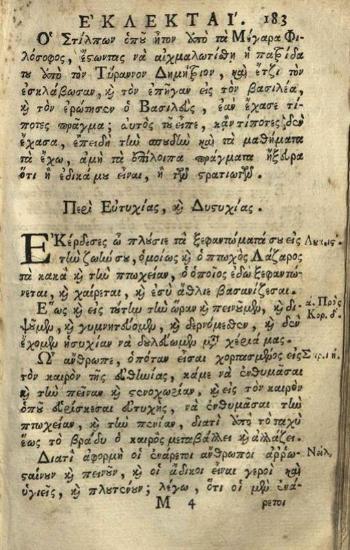 ἘΚΛΕΚΤΑΊ. 183
Ὁ Στίλπων ὁποῦ ἦτον ἀπὸ τὰ Μέγαρα Φι-
λόσοφος, ἔςωντας νὰ αἰχμαλωτιθῇ ἡ πατρίδα
του ἀπὸ τὸν Τύραννον Δημήτριον, καὶ ἔτζι τὸν
ἐσκλάβωσαν, κ τὸν ἐπῆγαν εἰς τὸν βασιλέα,
κ τὸν ἐρώτησεν ὁ Βασιλεὺς, ἐὰν ἔχασε τί-
ποτες πρᾶγμα; αὐτὸς τοῦ εἶπε, κᾂν τίποτες δὲν
ἔχασα, ἐπειδὴ τὴν σπουδὴν καὶ τὰ μαθήματα
τὰ ἔχω, ἀμὴ τὰ ἐπίλοιπα πράγματα ἤξευρα
ὅτι ἢ ἐδικά μου εἶναι, ἢ τῶν στρατιωτῶν.
Περὶ Εὐτυχίας, κ Δυςυχίας.
Ἐκέρδεσες ὦ πλούσιε τὰ ξεφαντώματά σου εἰς Λουκᾶς
τὴν ζωήν σου, ὁμοίως κ ὁ πτωχὸς Λάζαρος
τὰ κακὰ κ τὴν πτωχείαν, ὁ ὁποῖος ἐδῶ ξεφαντώ-
νεται, κ χαίρεται, κ ἐσὺ ἄθλιε βασανίζεσαι.
Ἕως κ εἰς τούτην τὴν ὥραν κ πεινοῦμεν, κ δι- α. Πρὸς
ψοῦμεν, κ γυμνητεύομεν, κ δερνόμεθεν, κ δὲν Κορ. δ.
ἔχομεν ἡσυχίαν νὰ δουλεύωμεν μὲ χέρια μας.
Ὦ ἄνθρωπε, ὁπόταν εἶσαι χορτασμένος εἰς Σειρ.
τὸν καιρὸν τῆς εὐθηνίας, κάμε νὰ ἐνθυμᾶσαι
κ τὴν πεῖναν κ ςενοχωρίαν, κ εἰς τὸν καιρὸν
ὁποῦ εὑρίσκεσαι εὐτυχὴς, νὰ ἐνθυμᾶσαι τὴν
πτωχείαν, κ τὴν πενίαν, διατὶ ἀπὸ τὸ ταχὺ
ἕως τὸ βράδυ ὁ καιρὸς μεταβάλλει κ ἀλλάζει.
Διατὶ ἀφορμὴ οἱ ἐνάρετοι ἄνθρωποι ἀῤῥω- Νείλ.
ςαίνουν κ πεινοῦν, κ οἱ ἄδικοι εἶναι γεροὶ καὶ
ὑγιεῖς, κ πλουτοῦνε; λέγω, ὅτι οἱ μὲν ἐνά-
Μ 4 ρετοι